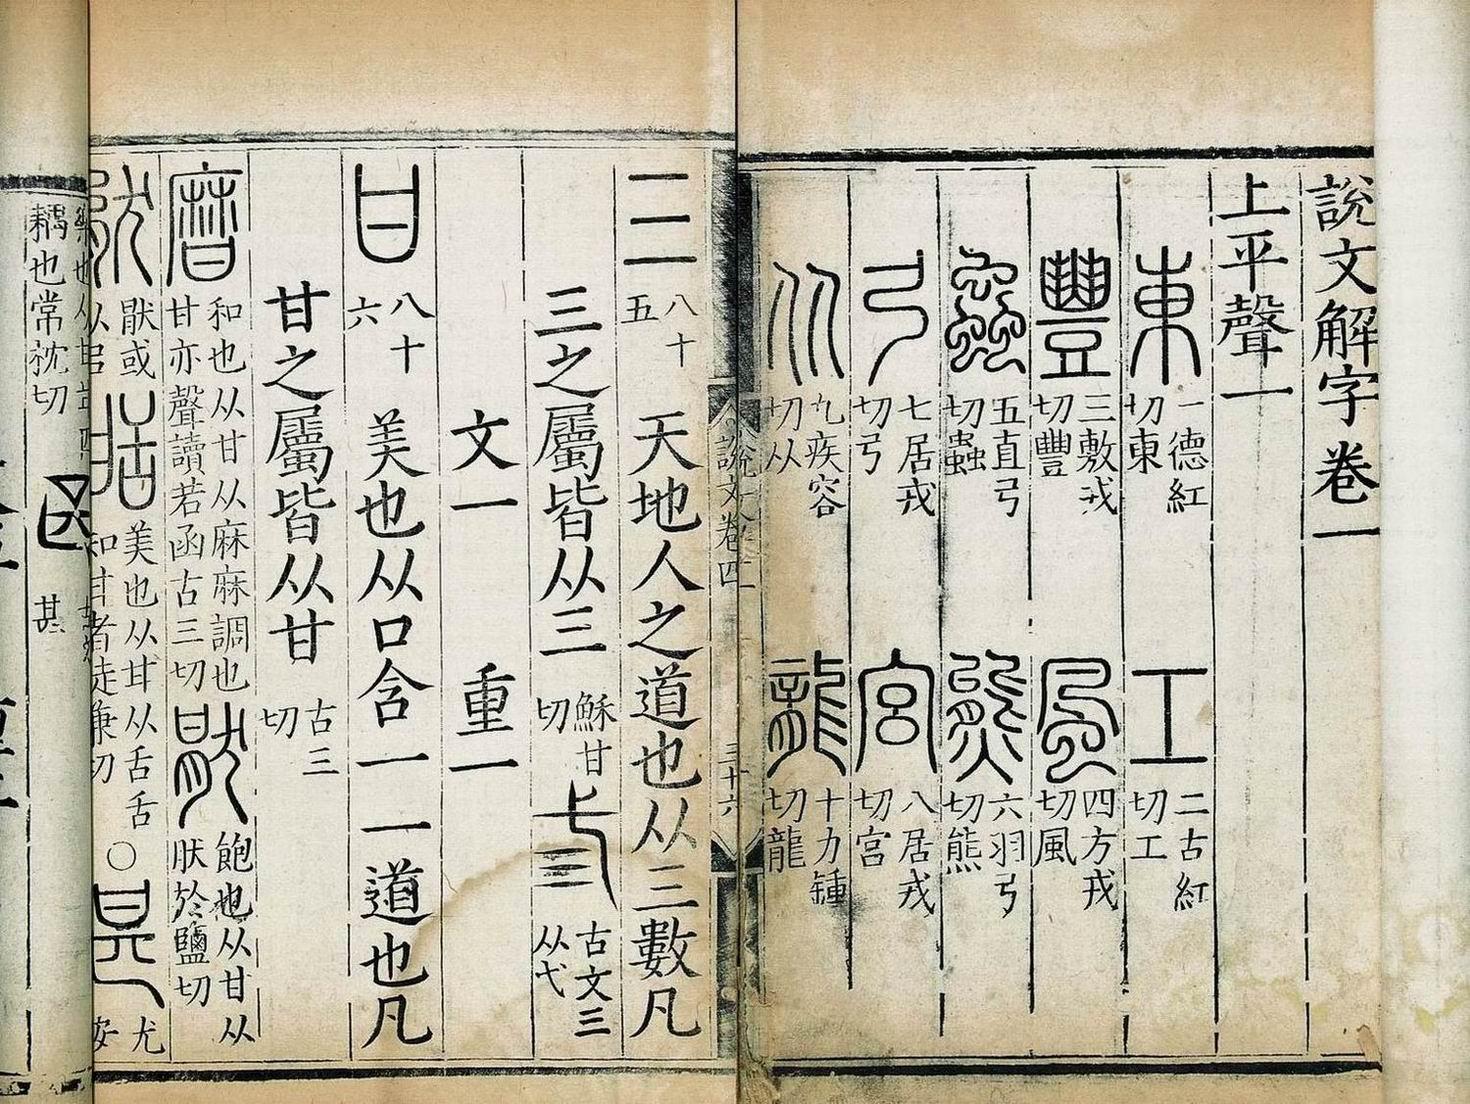 說文解字卷一
上平聲一
東 一德紅切東 工 二古紅切工
豐 三敷戎切豐 風 四方戎切風
蟲 五直弓切蟲 熊 六羽弓切熊
弓 七居戎切弓 宮 八居戎切宮
从 九疾容切从 龍 十力鍾切龍
說文卷四 三十六
三 八十五 天地人之道也从三數凡
三之屬皆从三 穌甘切 弎 古文三从弋
文一 重一
甘 八十六 美也从口含一一道也凡
甘之屬皆从甘 古三切
𪎭 和也从甘从麻麻調也甘亦聲讀若函古三切 猒 飽也从甘从肰於鹽切
猒或从㠯 甛 美也从甘从舌舌知甘者徒兼切 ○ 甚 尤安
耦也常枕切